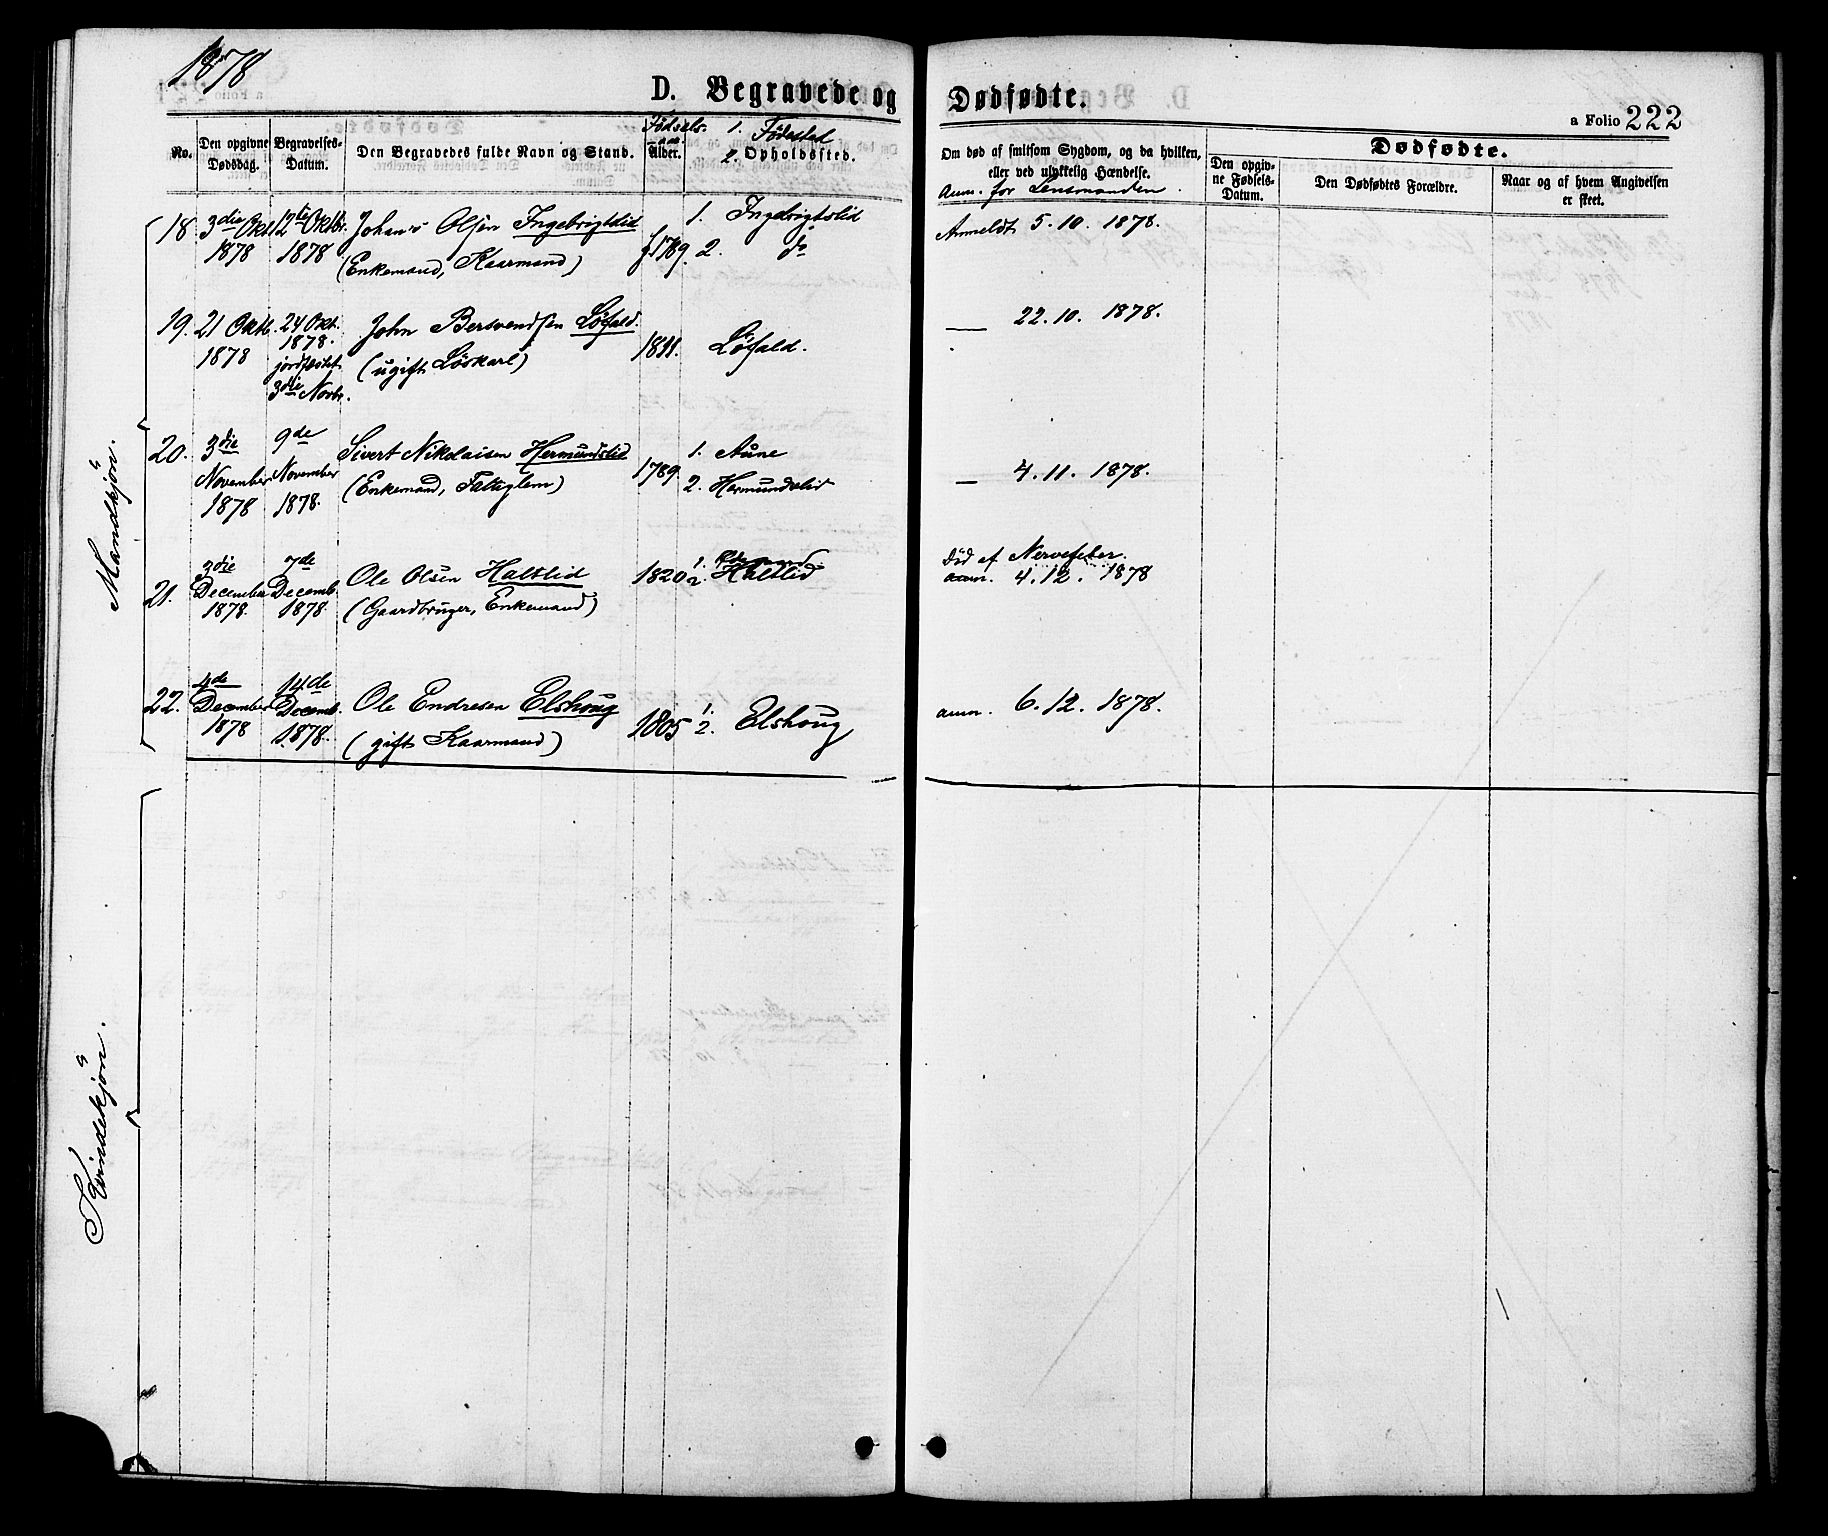 1878
D. Begravede og Dødfødte.
a Folio 222
No.
Den opgivne Dødsdag.
Begravelses-Datum.
Den Begravedes fulde Navn og Stand.
Fødsels-aar Alder.
1. Fødested
2. Opholdssted.
Om død af smitsom Sygdom, og da hvilken,
eller ved ulykkelig Hændelse.
Anm. for Lensmanden.
Dødfødte.
Den opgivne Fødsels-Datum.
Den Dødfødtes Forældre.
Naar og af hvem Angivelsen er skeet.
Mandkjön.
18 3die Okt. 1878 12te Oktbr. 1878 Johan's Olsen Ingebrigtslid
(Enkemand, Kaarmand) f. 1789. 1. Ingebrigtslid 2. do Anmeldt 5.10.1878.
19. 21 Oktb. 1878 24 Okt. 1878. jordfæstet 3die Novbr. John Bersvendsen Løfald.
(ugift Löskarl) 1811. Løfald. — 22.10.1878.
20. 3die November 1878 9de November 1878. Sivert Nikolaisen Hermundslid
(Enkemand, Fattiglem) 1789. 1. Aune 2. Hermundslid — 4.11.1878.
21. 3die December 1878. 7de Decemb. 1878. Ole Olsen Haltlid
(Gaardbruger, Enkemand) 1820 1. 2. Haltlid Död af Nervefeber. anm. 4.12.1878
22. 4de December 1878 14de Decemb. 1878. Ole Endresen Elshoug
(gift Kaarmand) 1805 1. 2. Elshoug anm. 6.12.1878.
Kvindekjön.